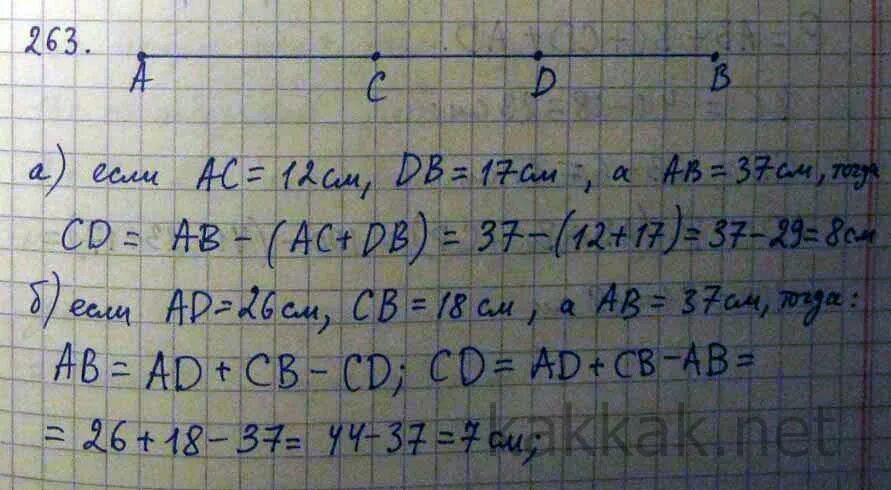 263.
A C D B
а) если AC = 12 см, DB = 17 см, а AB = 37 см, тогда
CD = AB - (AC + DB) = 37 - (12 + 17) = 37 - 29 = 8 см
б) если AD = 26 см, CB = 18 см, а AB = 37 см, тогда:
AB = AD + CB - CD; CD = AD + CB - AB =
= 26 + 18 - 37 = 44 - 37 = 7 см;
kakkak.net